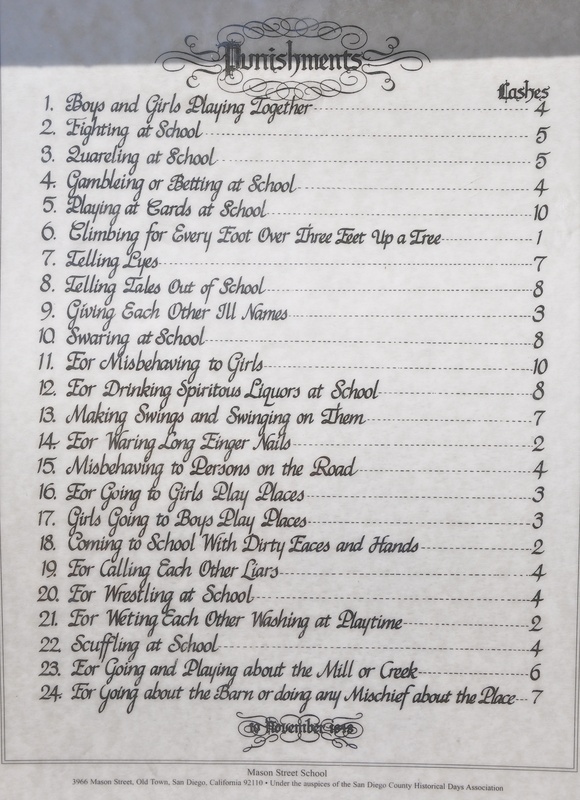 Punishments
Lashes
1. Boys and Girls Playing Together 4
2. Fighting at School 5
3. Quareling at School 5
4. Gambleing or Betting at School 4
5. Playing at Cards at School 10
6. Climbing for Every Foot Over Three Feet Up a Tree 1
7. Telling Lyes 7
8. Telling Tales Out of School 8
9. Giving Each Other Ill Names 3
10. Swaring at School 8
11. For Misbehaving to Girls 10
12. For Drinking Spiritous Liquors at School 8
13. Making Swings and Swinging on Them 7
14. For Waring Long Finger Nails 2
15. Misbehaving to Persons on the Road 4
16. For Going to Girls Play Places 3
17. Girls Going to Boys Play Places 3
18. Coming to School With Dirty Faces and Hands 2
19. For Calling Each Other Liars 4
20. For Wrestling at School 4
21. For Weting Each Other Washing at Playtime 2
22. Scuffling at School 4
23. For Going and Playing about the Mill or Creek 6
24. For Going about the Barn or doing any Mischief about the Place 7
November
Mason Street School
3966 Mason Street, Old Town, San Diego, California 92110 • Under the auspices of the San Diego County Historical Days Association